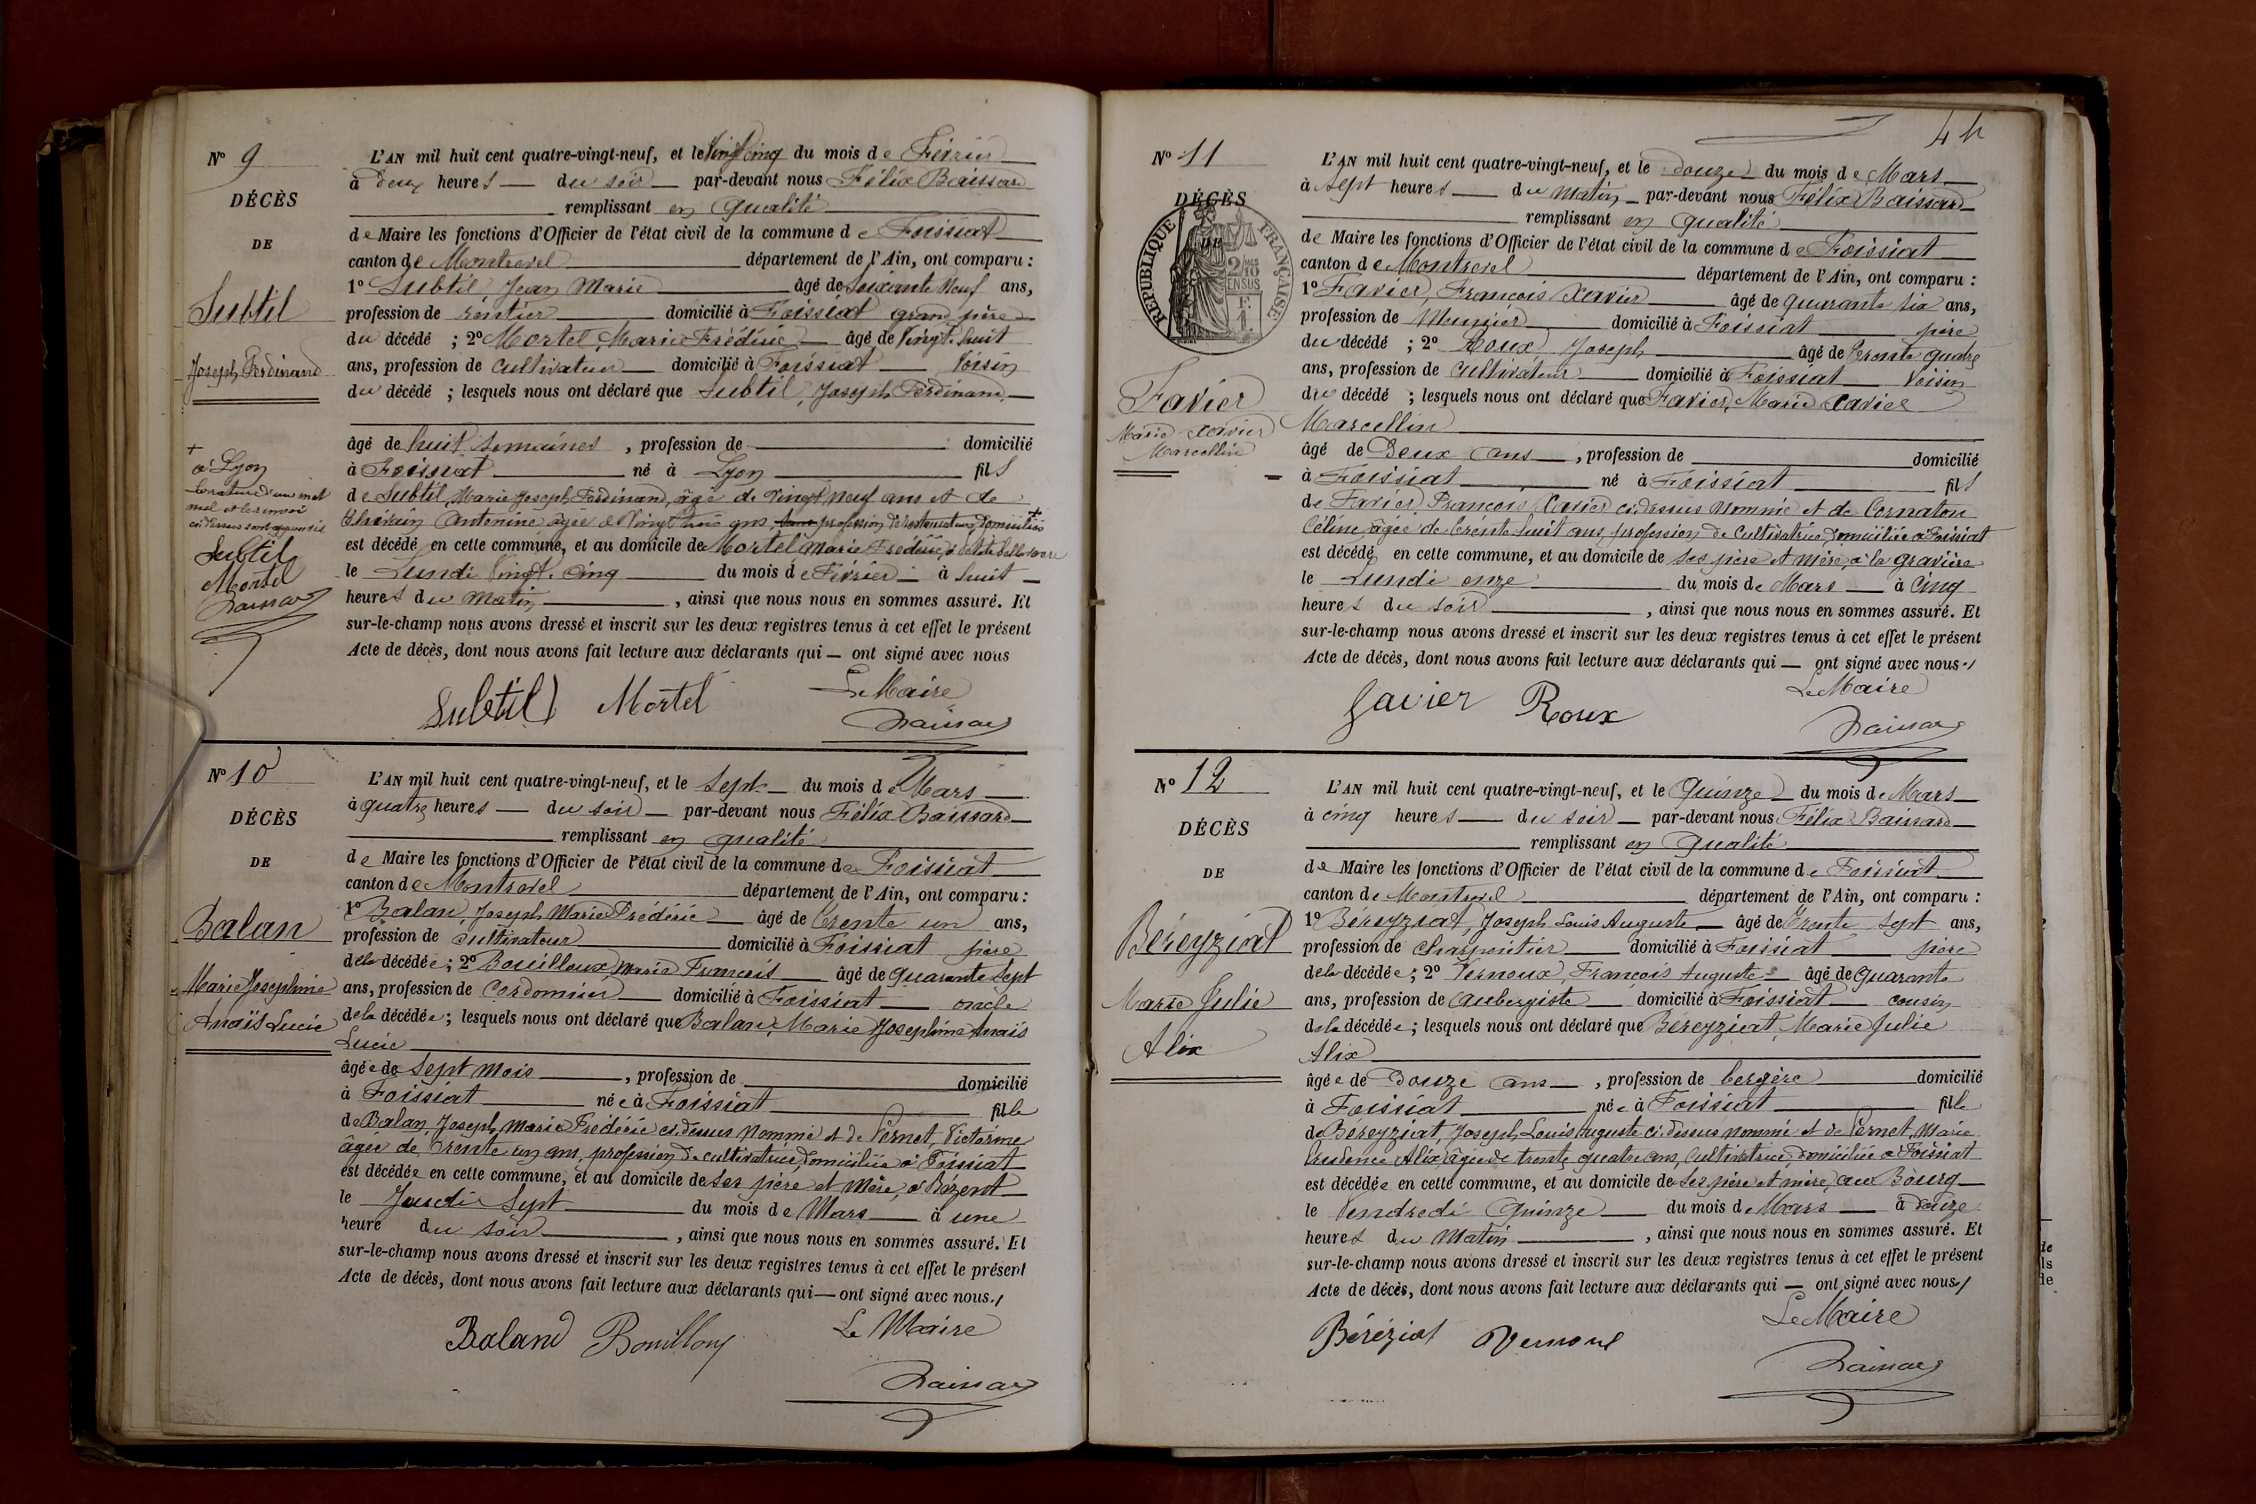 Nº 9
DÉCÈS
DE
Subtil
Joseph Ferdinand
L'AN mil huit cent quatre-vingt-neuf, et le vingt cinq du mois de Février
à deux heures du soir par-devant nous Félix Baissard
remplissant en qualité
de Maire les fonctions d'Officier de l'état civil de la commune de Foissiat
canton de Montrevel département de l'Ain, ont comparu :
1º Subtil Jean Marie âgé de soixante neuf ans,
profession de rentier domicilié à Foissiat grand père
du décédé ; 2º Mortel Marie Frédéric âgé de vingt-huit
ans, profession de cultivateur domicilié à Foissiat voisin
du décédé ; lesquels nous ont déclaré que Subtil, Joseph Ferdinand
âgé de huit semaines, profession de domicilié
à Foissiat né à Lyon fils
de Subtil, Marie Joseph Ferdinand, âgé de vingt neuf ans et de
Antonine âgée de vingt trois ans, profession de domiciliés +
est décédé en cette commune, et au domicile de Mortel Marie Frédéric
le Lundi vingt-cinq du mois de Février à huit
heures du matin, ainsi que nous nous en sommes assuré. Et
sur-le-champ nous avons dressé et inscrit sur les deux registres tenus à cet effet le présent
Acte de décès, dont nous avons fait lecture aux déclarants qui ont signé avec nous
+
à Lyon
la rature d'un mot
nul et le renvoi
ci dessus sont approuvés
Subtil
Mortel
Baissard
Subtil Mortel Le Maire
Baissard
Nº 10
DÉCÈS
DE
Balan
Marie Joséphine
Anaïs Lucie
L'AN mil huit cent quatre-vingt-neuf, et le sept du mois de Mars
à quatre heures du soir par-devant nous Félix Baissard
remplissant en qualité
de Maire les fonctions d'Officier de l'état civil de la commune de Foissiat
canton de Montrevel département de l'Ain, ont comparu :
1º Balan, Joseph Marie Frédéric âgé de trente un ans,
profession de cultivateur domicilié à Foissiat père
de la décédée ; 2º Bouilloux Marie François âgé de quarante sept
ans, profession de Cordonnier domicilié à Foissiat oncle
de la décédée ; lesquels nous ont déclaré que Balan, Marie Joséphine Anaïs
Lucie
âgée de sept mois, profession de domicilié
à Foissiat née à Foissiat fille
de Balan, Joseph Marie Frédéric ci-dessus nommé et de Pernet, Victorine
âgée de trente un ans, profession de cultivatrice, domiciliée à Foissiat
est décédée en cette commune, et au domicile de ses père et mère, à Bézent
le Jeudi sept du mois de Mars à une
heure du soir, ainsi que nous nous en sommes assuré. Et
sur-le-champ nous avons dressé et inscrit sur les deux registres tenus à cet effet le présent
Acte de décès, dont nous avons fait lecture aux déclarants qui ont signé avec nous
Baland Bouilloux Le Maire
Baissard
Nº 11
DÉCÈS
DE
RÉPUBLIQUE FRANÇAISE
Favier
Marie Xavier
Marcellin
L'AN mil huit cent quatre-vingt-neuf, et le douze du mois de Mars
à sept heures du matin par-devant nous Félix Baissard
remplissant en qualité
de Maire les fonctions d'Officier de l'état civil de la commune de Foissiat
canton de Montrevel département de l'Ain, ont comparu :
1º Favier, François Xavier âgé de quarante six ans,
profession de Meunier domicilié à Foissiat père
du décédé ; 2º Roux Joseph âgé de trente quatre
ans, profession de cultivateur domicilié à Foissiat voisin
du décédé ; lesquels nous ont déclaré que Favier, Marie Xavier
Marcellin
âgé de Deux ans, profession de domicilié
à Foissiat né à Foissiat fils
de Favier, François Xavier ci-dessus nommé et de Cornaton
Céline âgée de trente huit ans, profession de cultivatrice, domiciliée à Foissiat
est décédé en cette commune, et au domicile de ses père et mère, à la gravière
le Lundi onze du mois de Mars à cinq
heures du soir, ainsi que nous nous en sommes assuré. Et
sur-le-champ nous avons dressé et inscrit sur les deux registres tenus à cet effet le présent
Acte de décès, dont nous avons fait lecture aux déclarants qui ont signé avec nous
Favier Roux Le Maire
Baissard
Nº 12
DÉCÈS
DE
Béreyziat
Marie Julie
Alix
L'AN mil huit cent quatre-vingt-neuf, et le Quinze du mois de Mars
à cinq heures du soir par-devant nous Félix Baissard
remplissant en qualité
de Maire les fonctions d'Officier de l'état civil de la commune de Foissiat
canton de Montrevel département de l'Ain, ont comparu :
1º Béreyziat, Joseph Louis Auguste âgé de trente sept ans,
profession de Charpentier domicilié à Foissiat père
de la décédée ; 2º Vernoux, François Auguste âgé de quarante
ans, profession de aubergiste domicilié à Foissiat cousin
de la décédée ; lesquels nous ont déclaré que Béreyziat, Marie Julie
Alix
âgée de Douze ans, profession de bergère domicilié
à Foissiat née à Foissiat fille
de Béreyziat, Joseph Louis Auguste ci-dessus nommé et de Pernet, Marie
Prudence Alix, âgée de trente quatre ans, cultivatrice, domiciliée à Foissiat
est décédée en cette commune, et au domicile de ses père et mère, au Bourg
le Vendredi Quinze du mois de Mars à onze
heures du Matin, ainsi que nous nous en sommes assuré. Et
sur-le-champ nous avons dressé et inscrit sur les deux registres tenus à cet effet le présent
Acte de décès, dont nous avons fait lecture aux déclarants qui ont signé avec nous
Béréziat Vernoux Le Maire
Baissard